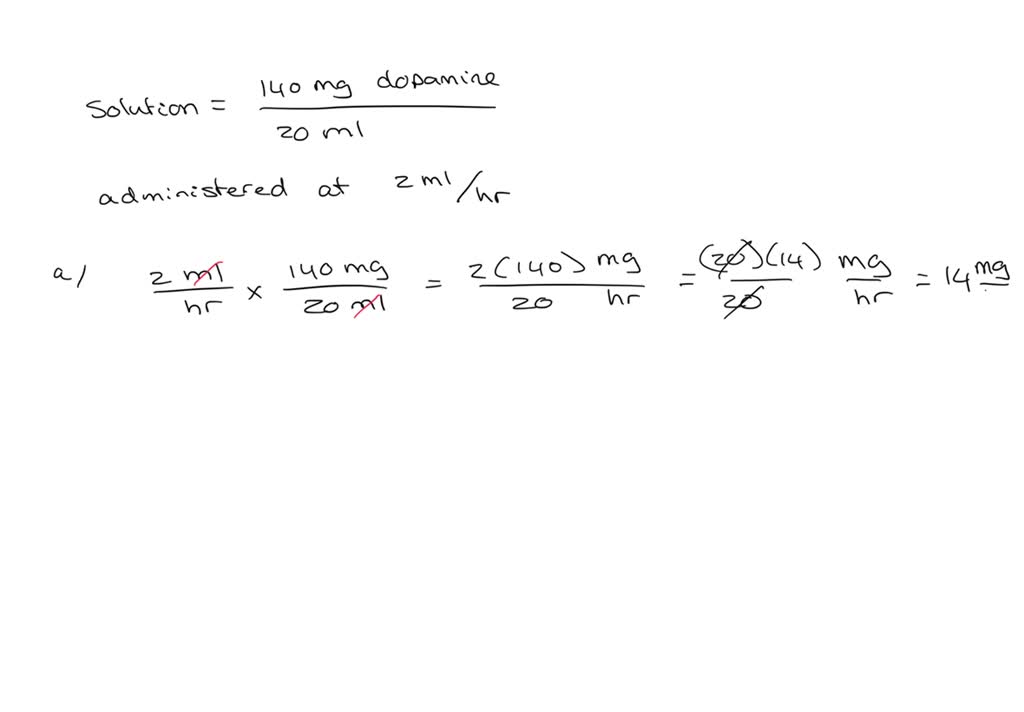 Solution = 140 mg dopamine / 20 ml
administered at 2 ml/hr
a) 2 ml/hr × 140 mg/20 ml = 2(140) mg/20 hr = (20)(14)/20 mg/hr = 14 mg